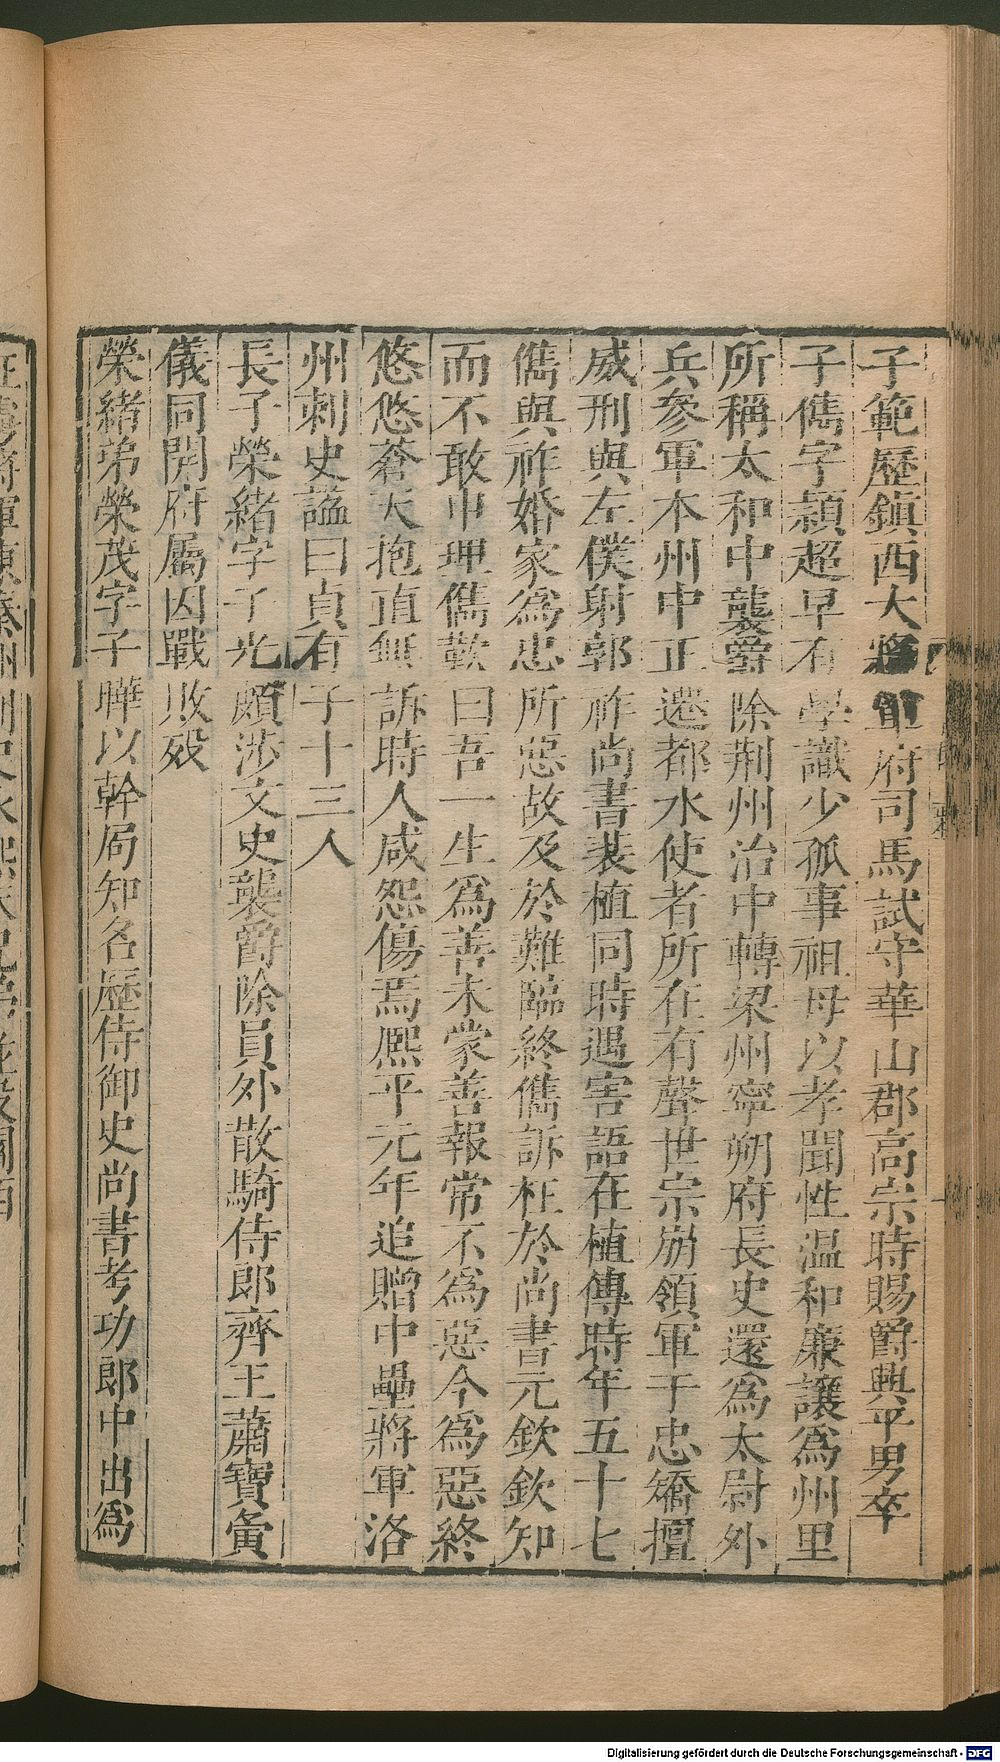 子範歷鎮西大將軍府司馬試守華山郡高宗時賜爵興平男卒
子儁字穎超早有學識少孤事祖母以孝聞性温和廉讓為州里
所稱太和中襲爵除荆州治中轉梁州寧朔府長史還為太尉外
兵參軍本州中正遷都水使者所在有聲世宗崩領軍于忠矯擅
威刑與左僕射郭祚尚書裴植同時遇害語在植傳時年五十七
儁與祚婚家為忠所惡故及於難臨終儁訴枉於尚書元欽欽知
而不敢申理儁歎曰吾一生爲善未蒙善報常不為惡今為惡終
悠悠蒼天抱直無訴時人咸怨傷焉熈平元年追贈中壘將軍洛
州刺史諡曰貞有子十三人
長子榮緒字子光頗涉文史襲爵除員外散騎侍郎齊王蕭寶夤
儀同開府屬因戰敗殁
榮緒弟榮茂字子曄以幹局知名歷侍御史尚書考功郎中出為
Digitalisierung gefördert durch die Deutsche Forschungsgemeinschaft - DFG